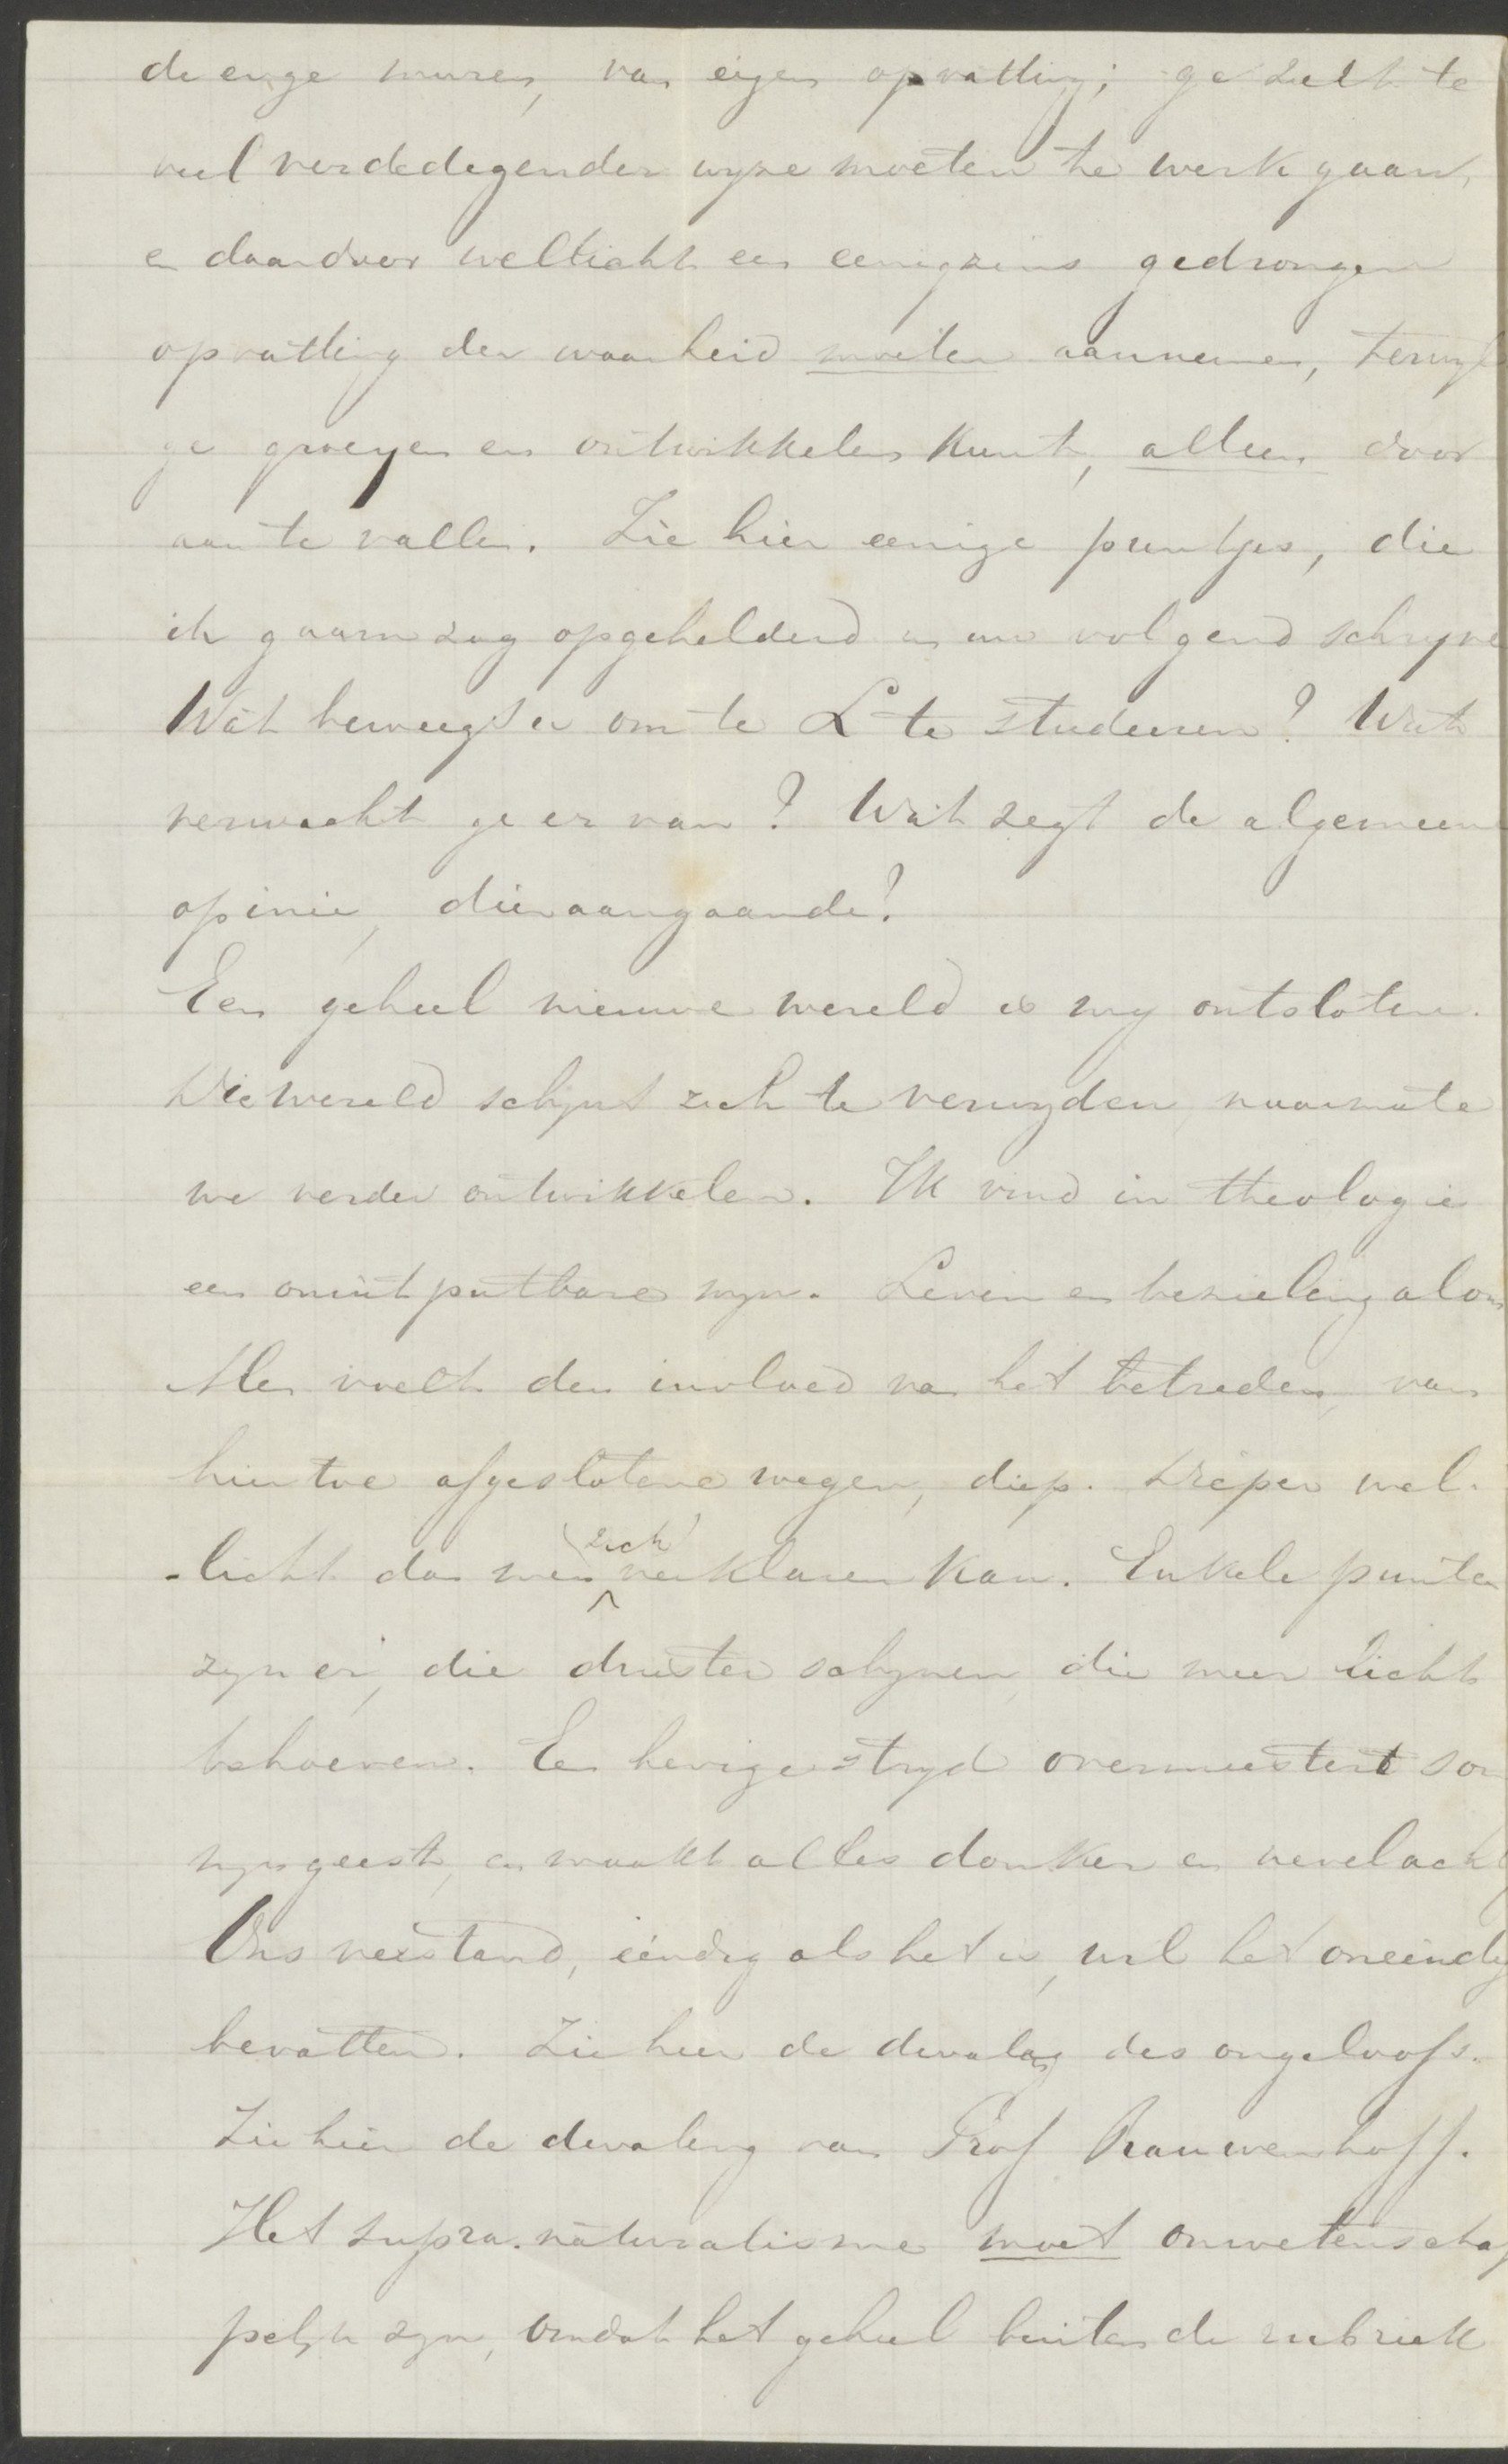 de enge muren, van eigen opvatting; ge zult te
veel verdedegender wyze moeten te werk gaan,
en daardoor wellicht een eenigzins gedrongen
opvatting der waarheid moeten aannemen, terwyl
ge groeyen en ontwikkelen kunt, alleen door
aan te vallen. Zie hier eenige puntjes, die
ik gaarne zag opgehelderd in uw volgend schryve
Wat beweegt u om te L te studeeren? Wat
verwacht ge er van? Wat zegt de algemeen
opinie, dienaangaande?
Een geheel nieuwe wereld is my ontsloten.
Die wereld schynt zich te verwyden, naarmate
we verder ontwikkelen. Ik vind in theologie
een onuitputbare myn. Leven en bezieling alom
Men voelt den invloed van het betreden, van
hiertoe afgeslotene wegen, diep. Dieper wel-
-licht dan men zich verklaren kan. Enkele punten
zyn er, die duister schynen, die meer licht
behoeven. Een hevige stryd overmeestert som
myn geest, en maakt alles donker en nevelacht
Ons verstand, eindig als het is, wil het oneindig
bevatten. Zie hier de dwaling des ongeloofs.
Zie hier de dwaling van Prof Rauwenhoff.
Het supra-naturalisme moet onwetenschap
pelyk zyn, omdat het geheel buiten de rubriek